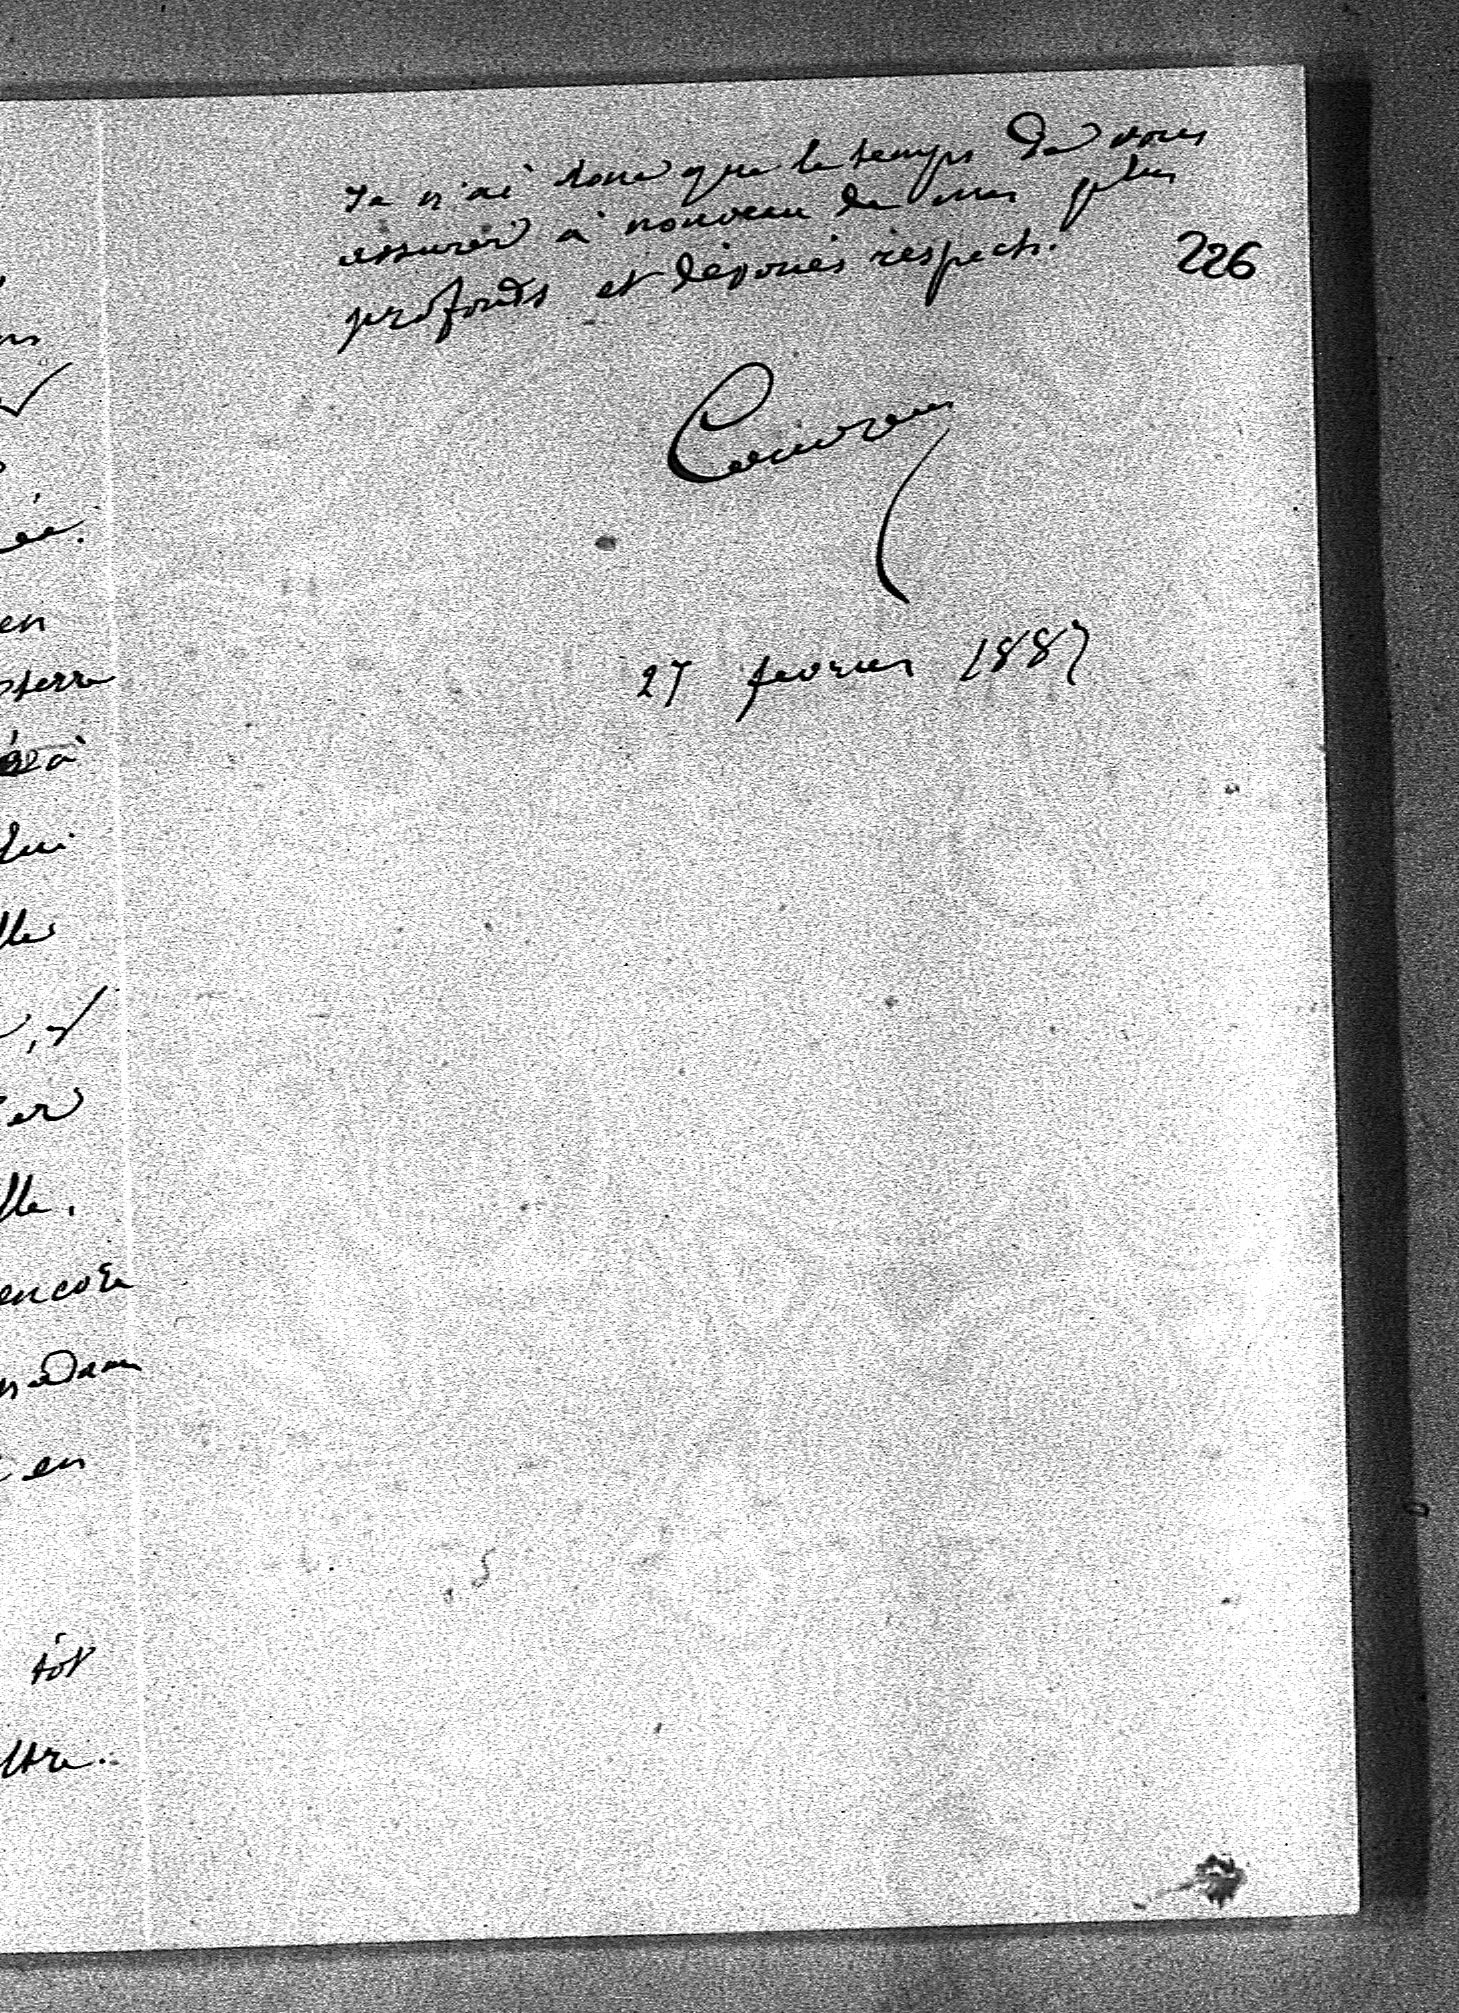 ns
ée.
en
terre
à
lui
lle
, et
er
lle.
encore
madame
en
tôt
ttre.
Je n'ai donc que le temps de vous
assurer à nouveau de mes plus
profonds et dévoués respects.
226
27 fevrier 1887